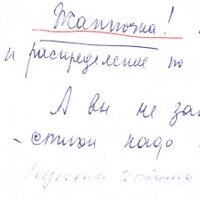 Жанночка!
и распределение по
А вы не за
- стихи надо